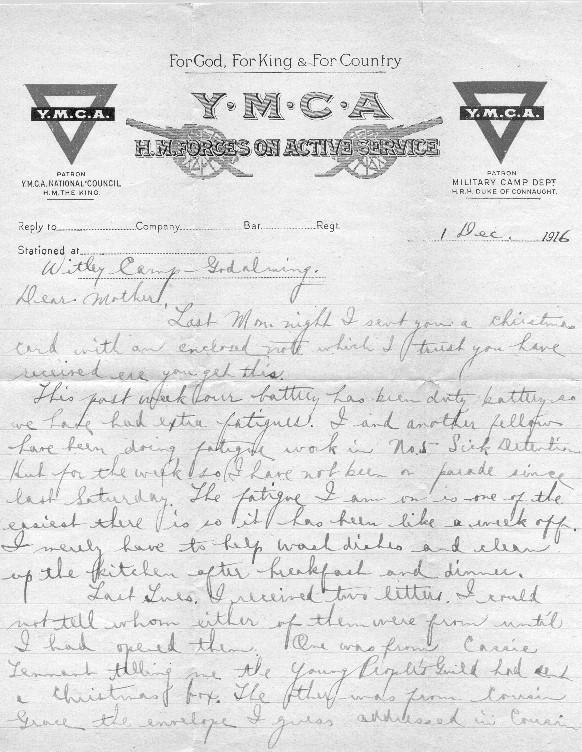 For God, For King & For Country
Y·M·C·A
H.M. FORCES ON ACTIVE SERVICE
Y.M.C.A.
PATRON
Y.M.C.A. NATIONAL COUNCIL
H.M. THE KING.
Y.M.C.A.
PATRON
MILITARY CAMP DEPT
H.R.H. DUKE OF CONNAUGHT.
Reply to Company Bar. Regt.
1 Dec. 1916
Stationed at
Witley Camp - Godalming.
Dear Mother,
Last Mon. night I sent you a christmas
card with an enclosed note which I trust you have
received ere you get this.
This past week our battery has been duty battery so
we have had extra fatigues. I and another fellow
have been doing fatigue work in No.5 Sick Detention
Hut for the week so I have not been on parade since
last Saturday. The fatigue I am on is one of the
easiest there is so it has been like a week off.
I merely have to help wash dishes and clean
up the kitchen after breakfast and dinner.
Last Tues. I received two letters. I could
not tell whom either of them were from until
I had opened them. One was from Cassie
Tennant telling me the Young People's Guild had sent
a Christmas box. The other was from Cousin
Grace the envelope I guess addressed in Cousin